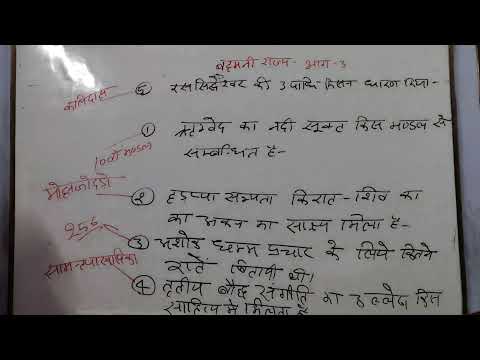 बहमनी राज्य - भाग -3
कालिदास 5 रससिद्धेश्वर की उपाधि किसने धारण किया-
1 ऋग्वेद का नदी सूक्त किस मण्डल से
10वाँ मण्डल सम्बन्धित है-
मोहनजोदड़ो
2 हड़प्पा सभ्यता किरात - शिव का
का अंकन का साक्ष्य मिला है-
256
3 अशोक धम्म प्रचार के लिये कितने
रातें बितायी थी।
4 तृतीय बौद्ध संगीति का उल्लेख किस
साहित्य में मिलता है